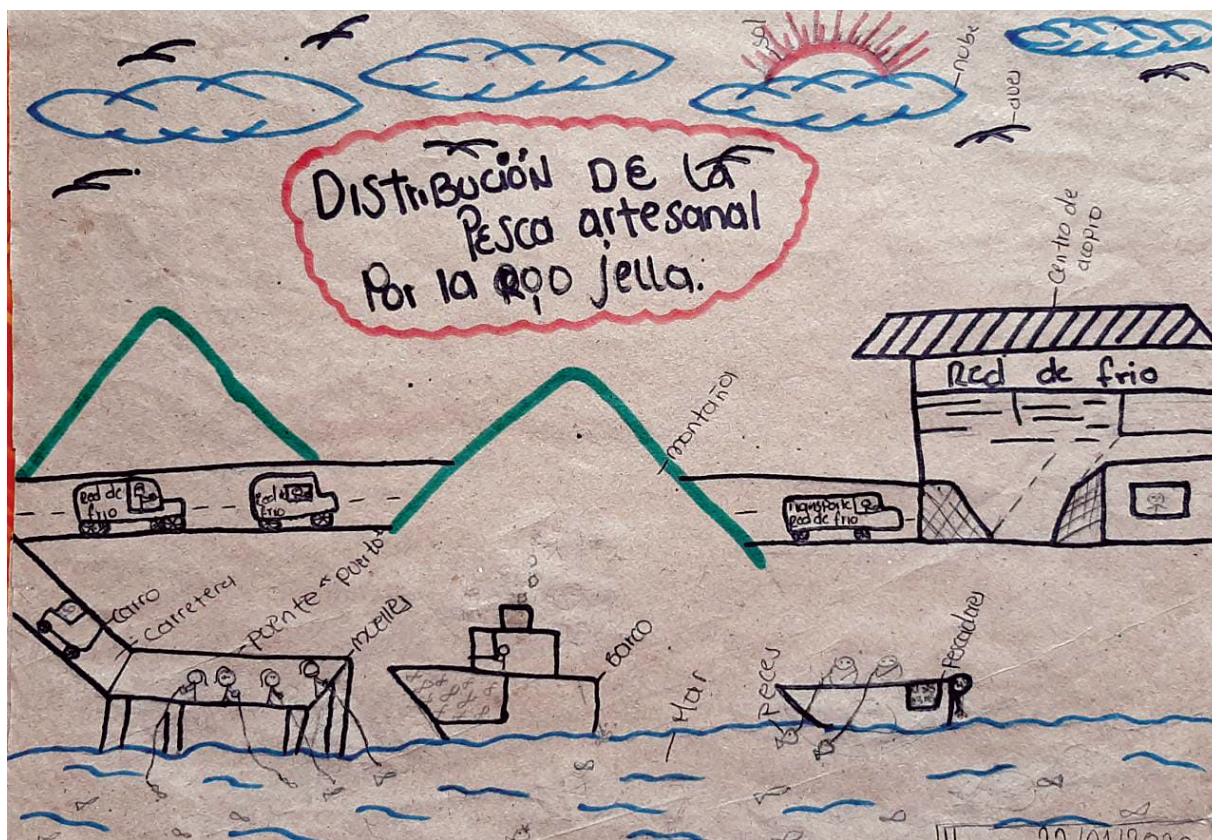 sol
nube
aves
DISTRIBUCIÓN DE la
PESCA artesanal
Por la jella.
centro de
acopio
Red de frio
montaña
Red de
frio
Red de
frio
Transporte
Red de frio
carro
carretera
puente "puerto"
muelle
Barco
Mar
Peces
Pescadores